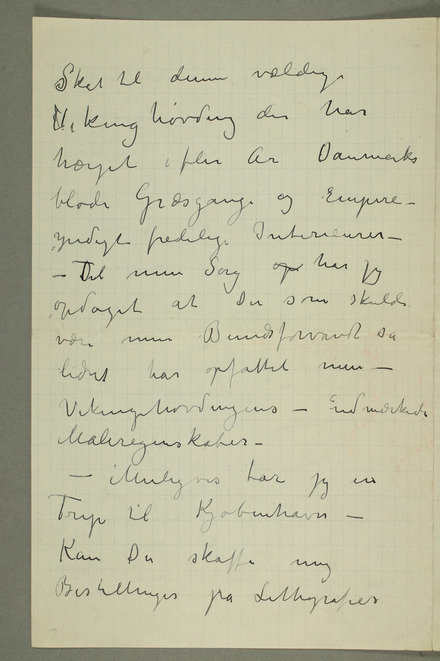 Skal til denne vældige
Vikinghövding der har
hærget i flere Aar Danmarks
bløde Græsgange og Empire-
yndigt fredelige Interieurer –
– Til min Sorg har jeg
opdaget at Du som skulde
være min Bundsforvandt så
lidet har opfattet min –
Vikingehövdingens – Udmærkede
Maleregenskaber –
– Muligvis tar jeg en
Trip til Kjøbenhavn –
Kan Du skaffe mig
Bestillinger på Lithografier